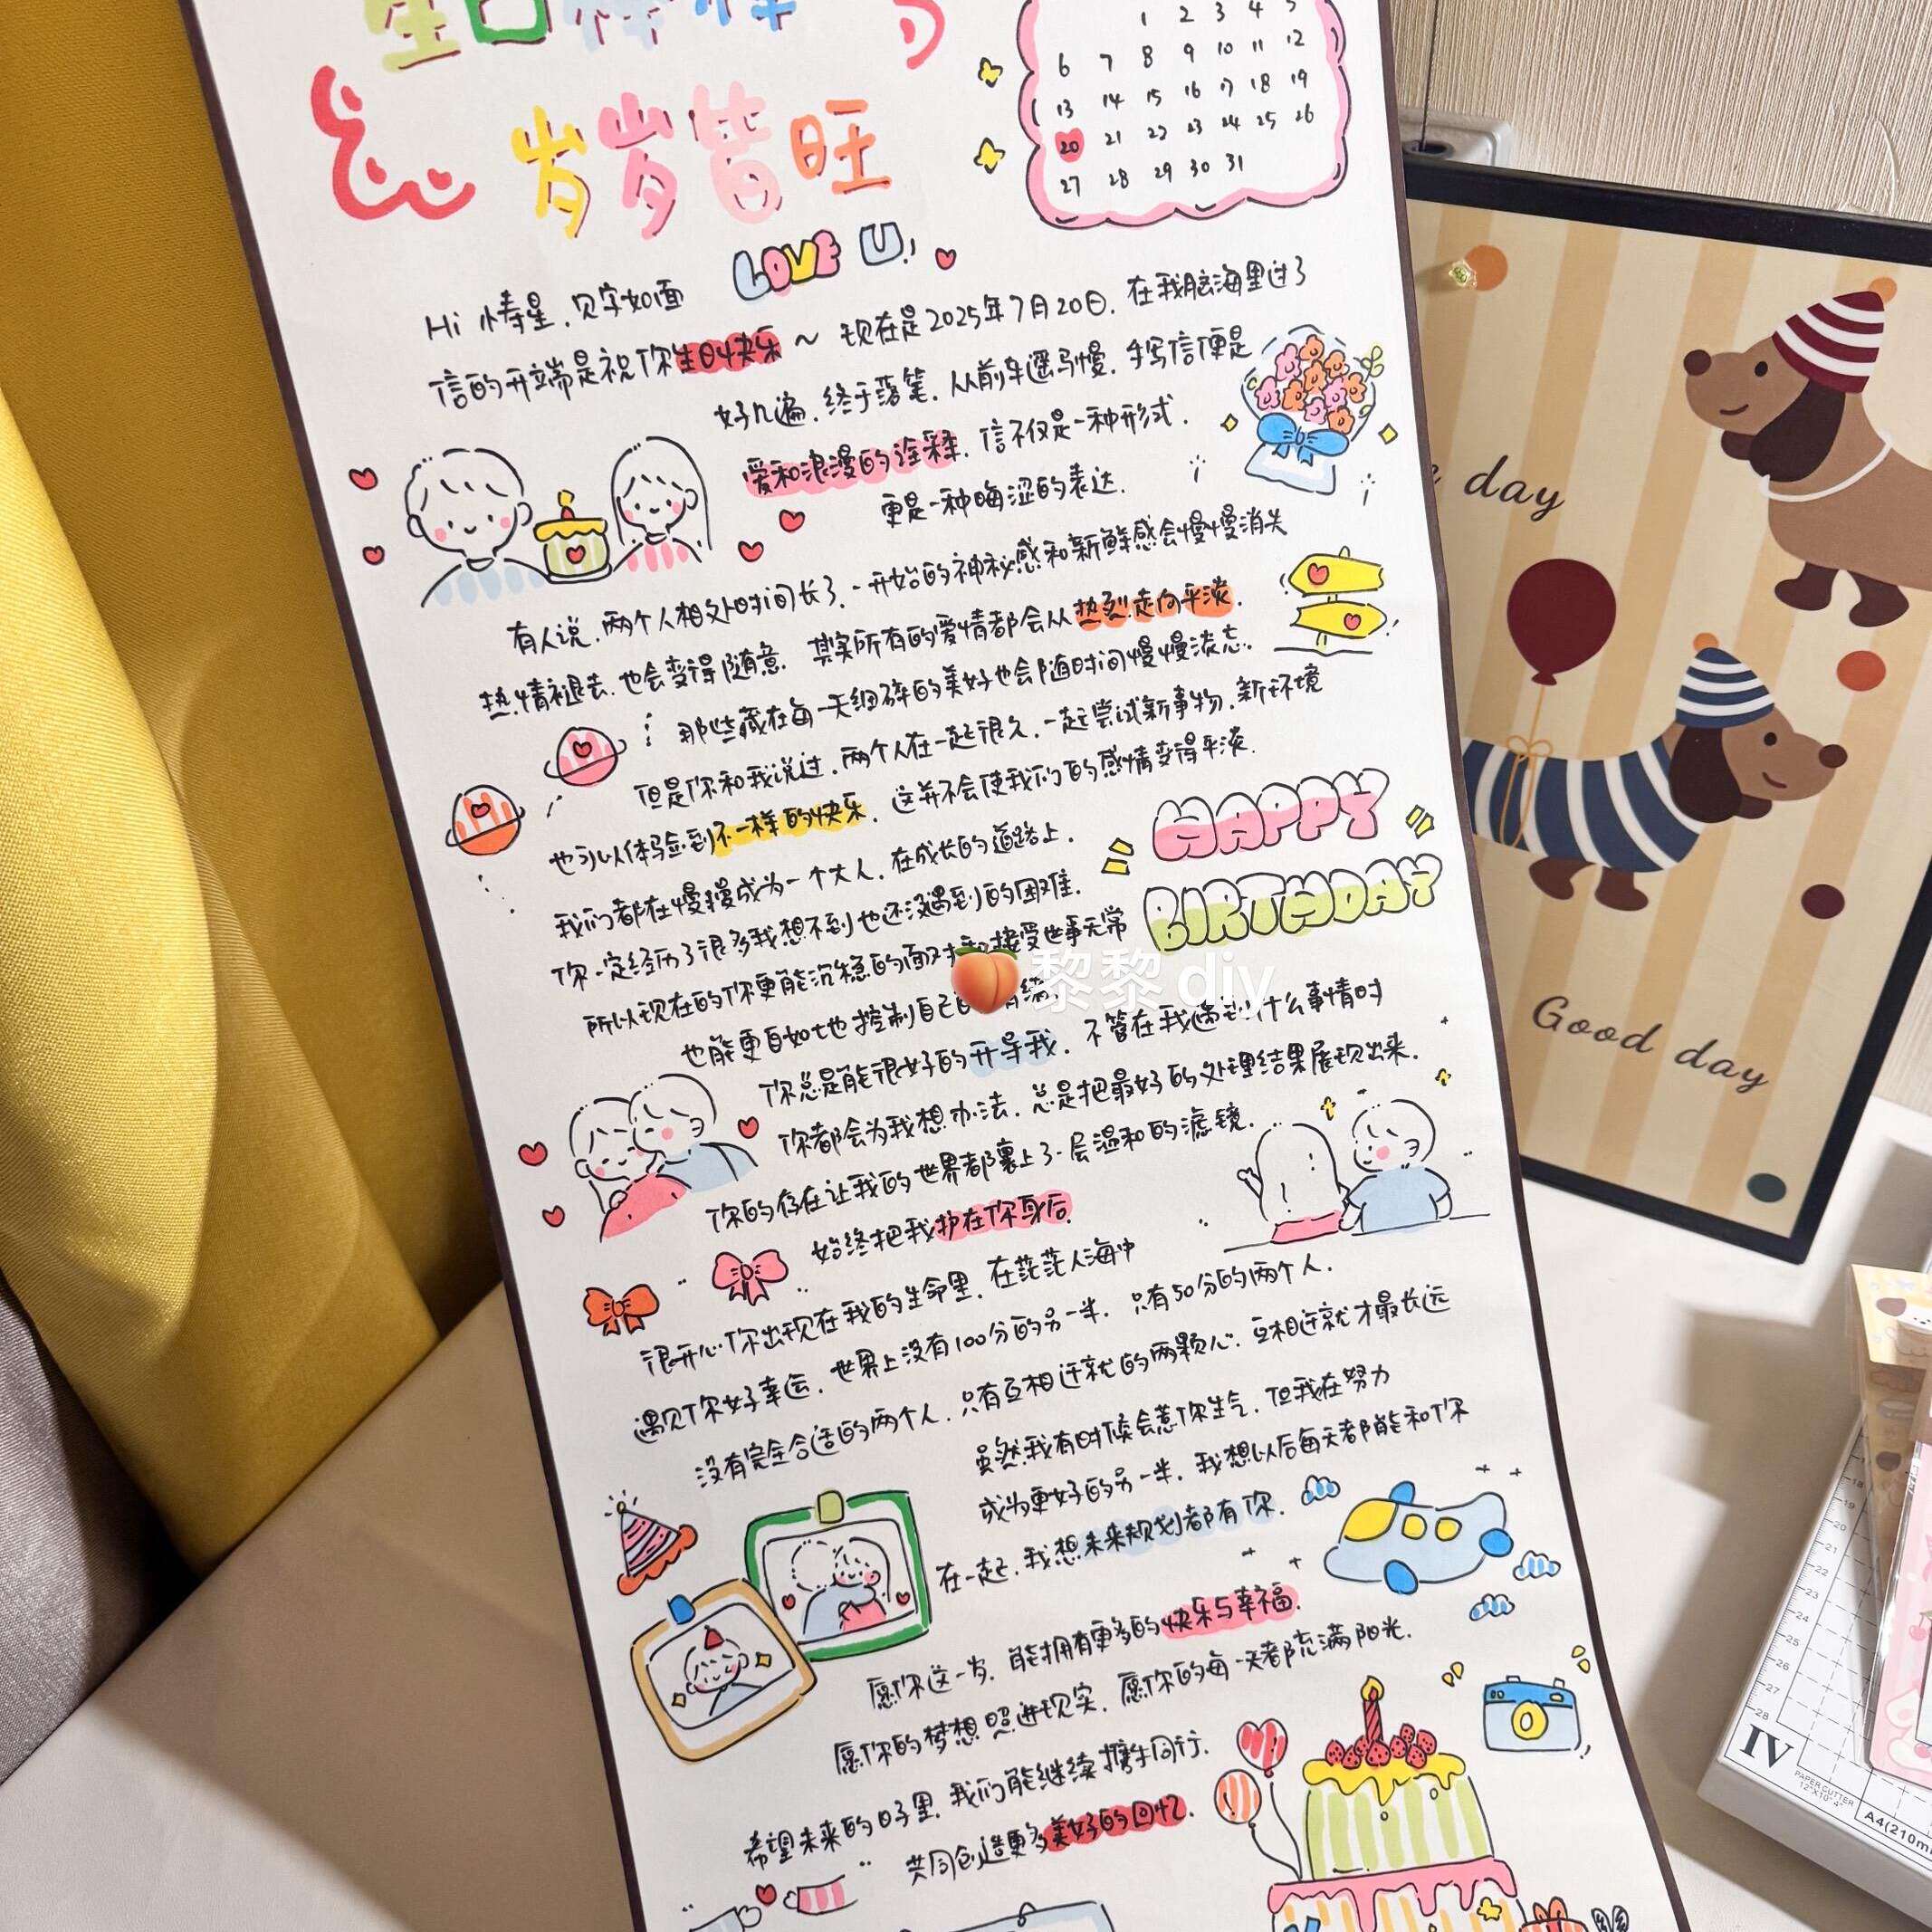 岁岁皆旺
1 2 3 4 5
6 7 8 9 10 11 12
13 14 15 16 17 18 19
20 21 22 23 24 25 26
27 28 29 30 31
LOVE U!
Hi 情星，见字如面
信的开端是祝你生日快乐～ 现在是2025年7月20日，在我脑海里过了
好几遍，终于落笔，从前车遥马慢，手写信便是
爱和浪漫的诠释，信不仅是一种形式，
更是一种晦涩的表达，
有人说，两个人相处时间长了，一开始的神秘感和新鲜感会慢慢消失
热情褪去，也会变得随意，其实所有的爱情都会从热烈走向平淡，
那些藏在每一天细碎的美好也会随时间慢慢淡忘，
但是你和我说过，两个人在一起很久，一起尝试新事物，新环境
也可以体验到不一样的快乐，这并不会使我们的感情变得平淡，
HAPPY
BIRTHDAY
我们都在慢慢成为一个大人，在成长的道路上，
你一定经历了很多我想不到也还没遇到的困难，
所以现在的你更能沉稳的面对和接受世事无常
也能更自如地控制自己的情绪，
黎黎diy
你总是能很好的开导我，不管在我遇到什么事情时
你都会为我想办法，总是把最好的处理结果展现出来，
你的存在让我的世界都裹上了一层温和的滤镜，
始终把我护在你身后，
很开心你出现在我的生命里，在茫茫人海中
遇见你好幸运，世界上没有100分的另一半，只有50分的两个人，
没有完全合适的两个人，只有互相迁就的两颗心，互相迁就才最长远
虽然我有时候会惹你生气，但我在努力
成为更好的另一半，我想以后每天都能和你
在一起，我想未来规划都有你，
愿你这一岁，能拥有更多的快乐与幸福，
愿你的梦想照进现实，愿你的每一天都充满阳光，
希望未来的日子里，我们能继续携手同行，
共同创造更多美好的回忆，
day
Good day
18
19
20
21
22
23
24
25
26
27
28
IV
PAPER CUTTER
12"X10"4"
A4(210m